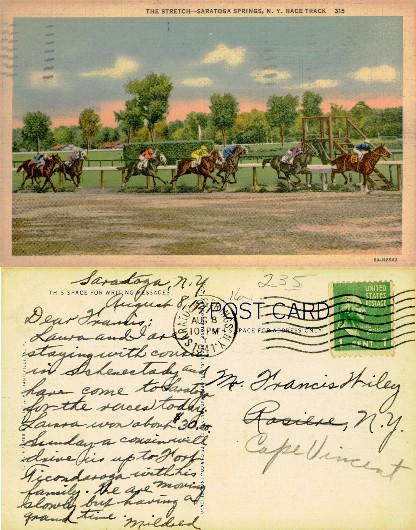 THE STRETCH—SARATOGA SPRINGS, N. Y. RACE TRACK 315
Saratoga, N.Y.
THIS SPACE FOR WRITING MESSAGES
August 8, 1941
235
POST CARD
SPACE FOR ADDRESS ONLY
SARATOGA SPRINGS N.Y.
AUG 8
10 PM
1941
UNITED STATES
POSTAGE
1 CENT 1
Dear Francis:
Laura and I are
staying with cousins
in Schenectady and
have come to Saratoga
for the races today.
Laura won about $30. on
Sunday a cousin will
drive us up to Fort
Ticonderoga with his
family. We are moving
slowly but having a
grand time. Mildred
Mr. Francis Wiley
Rosiere, N.Y.
Cape Vincent